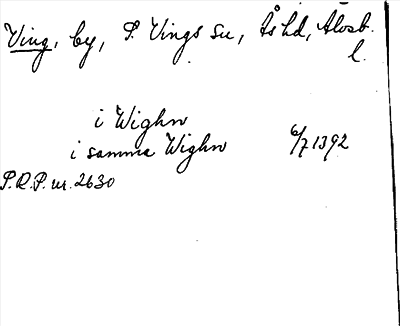 Ving, by, S. Vings sn, Ås hd, Älvsb.
l.
i Wighn
i samma Wighn 6/7 1392
S.R.P. nr. 2630